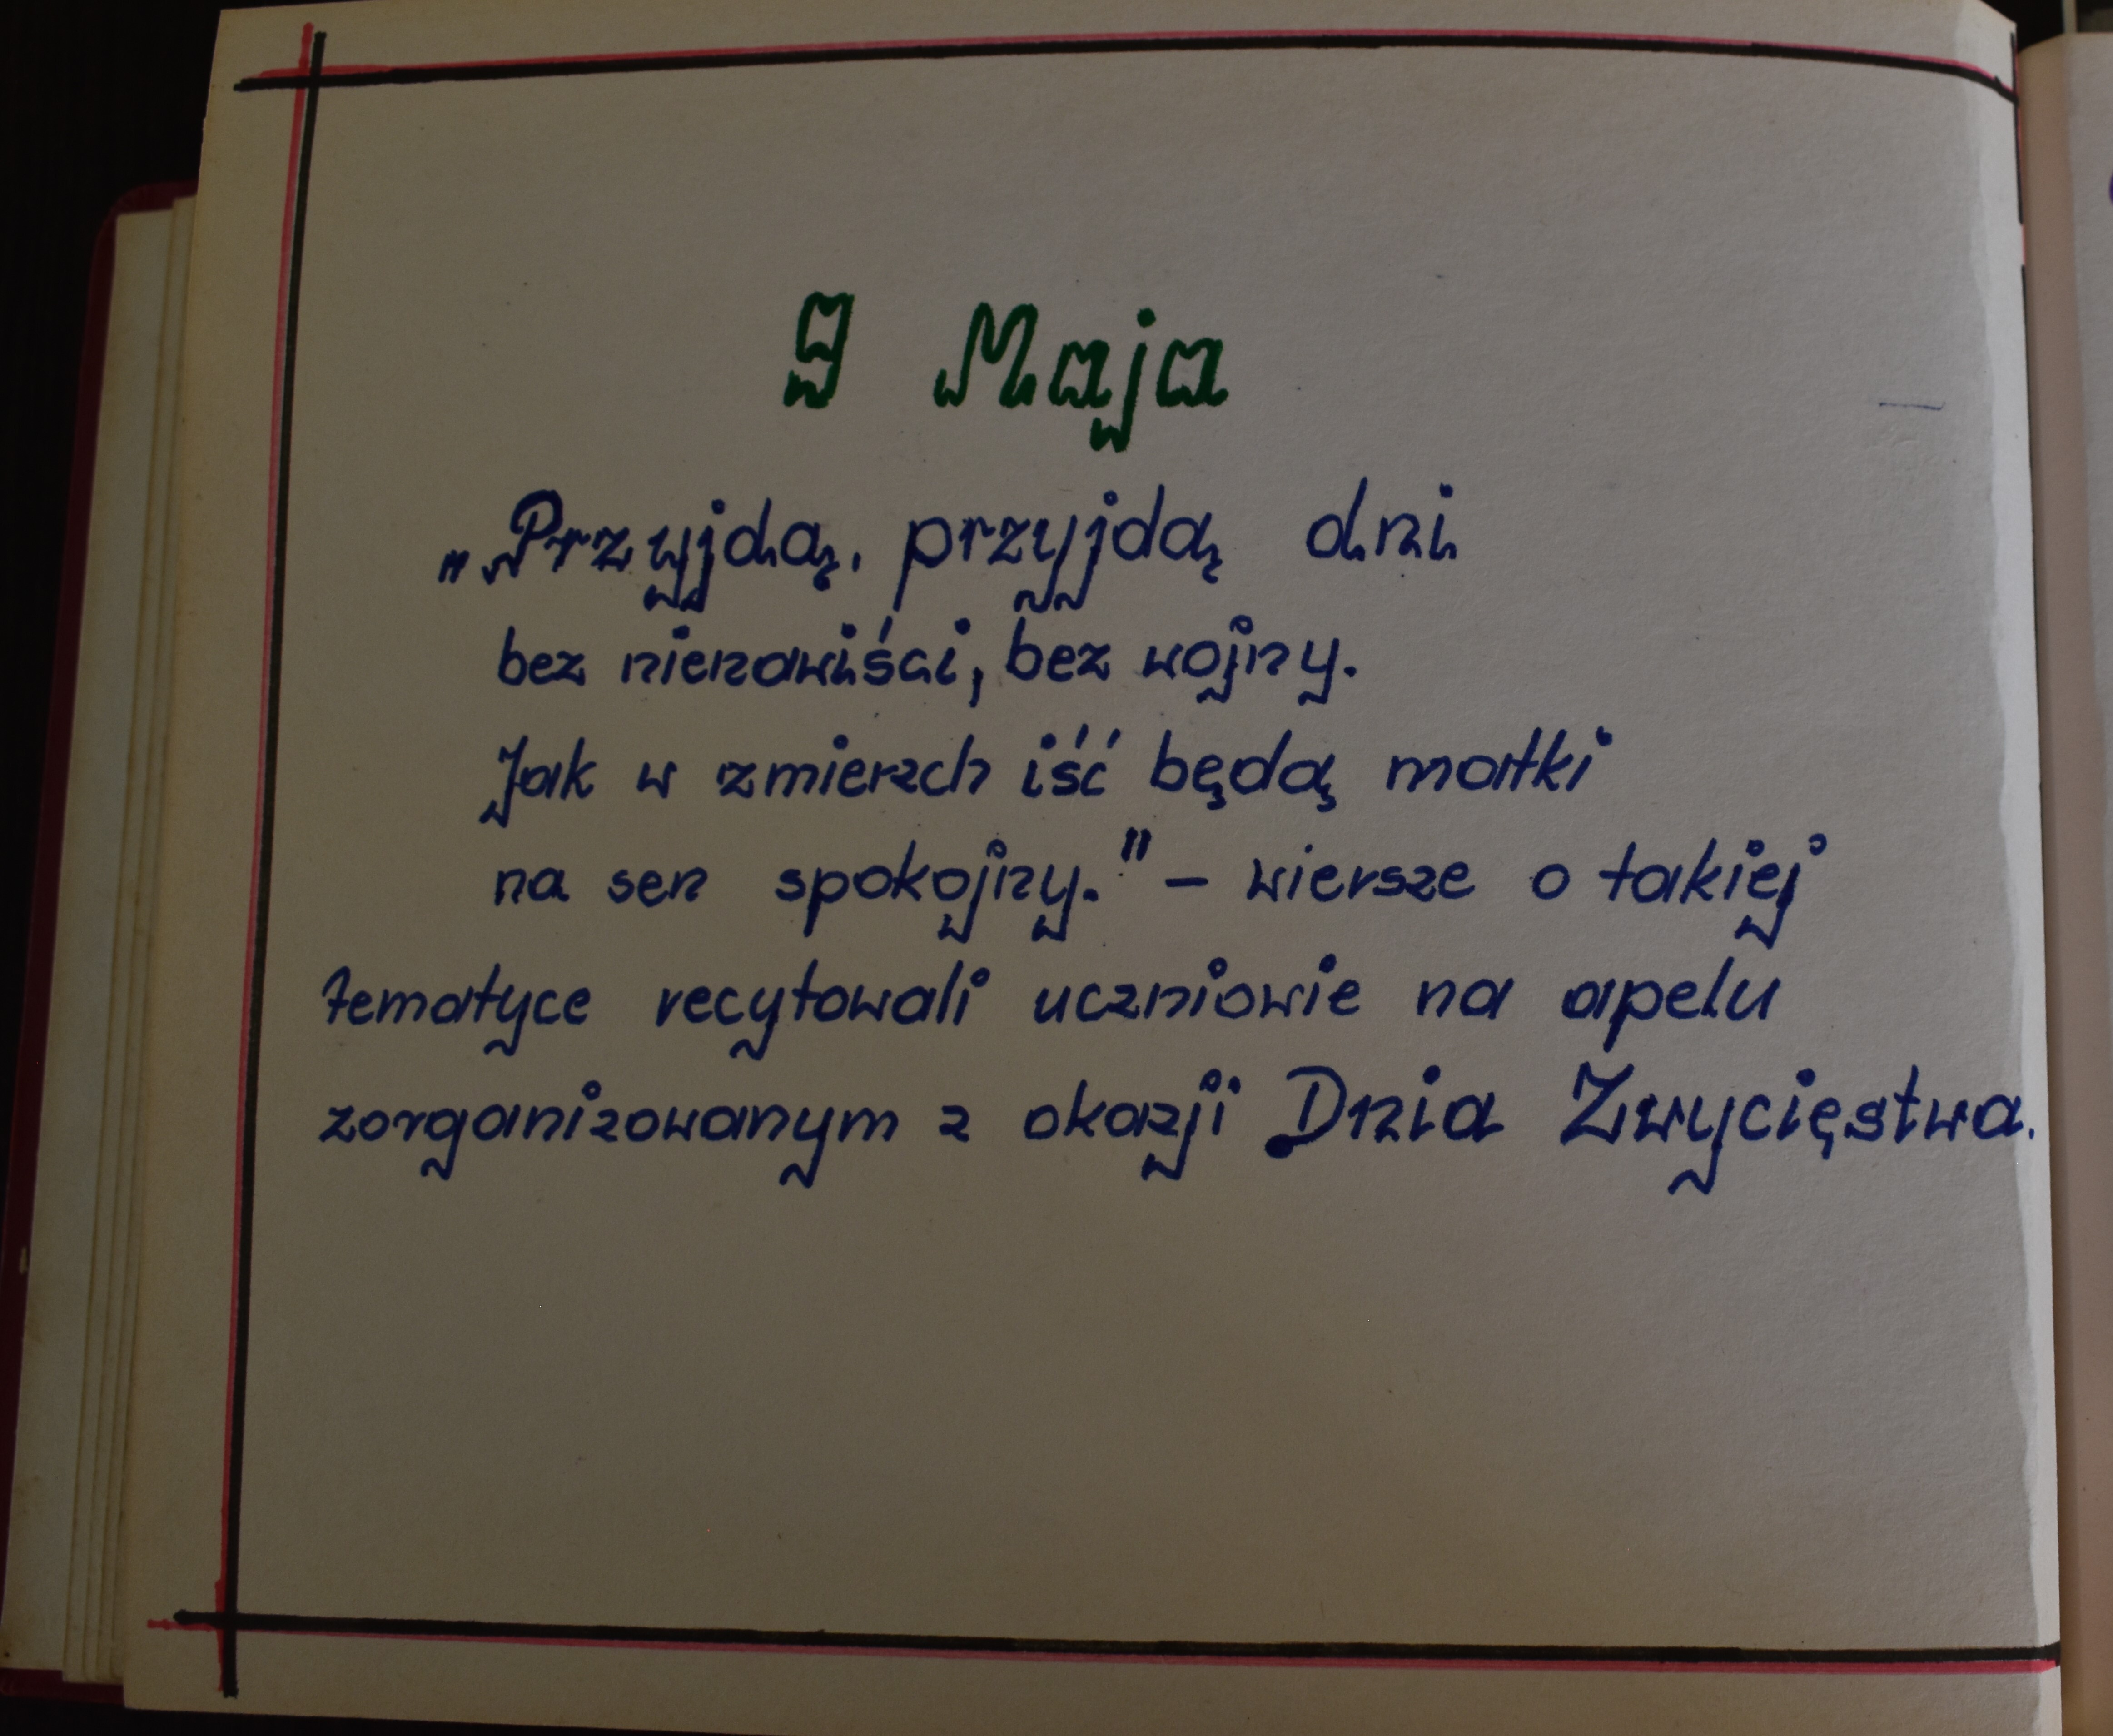 9 Maja
„Przyjdą, przyjdą dni
bez nienawiści, bez wojny.
Jak w zmierzch iść będą matki
na sen spokojny." – wiersze o takiej
tematyce recytowali uczniowie na apelu
zorganizowanym z okazji Dnia Zwycięstwa.